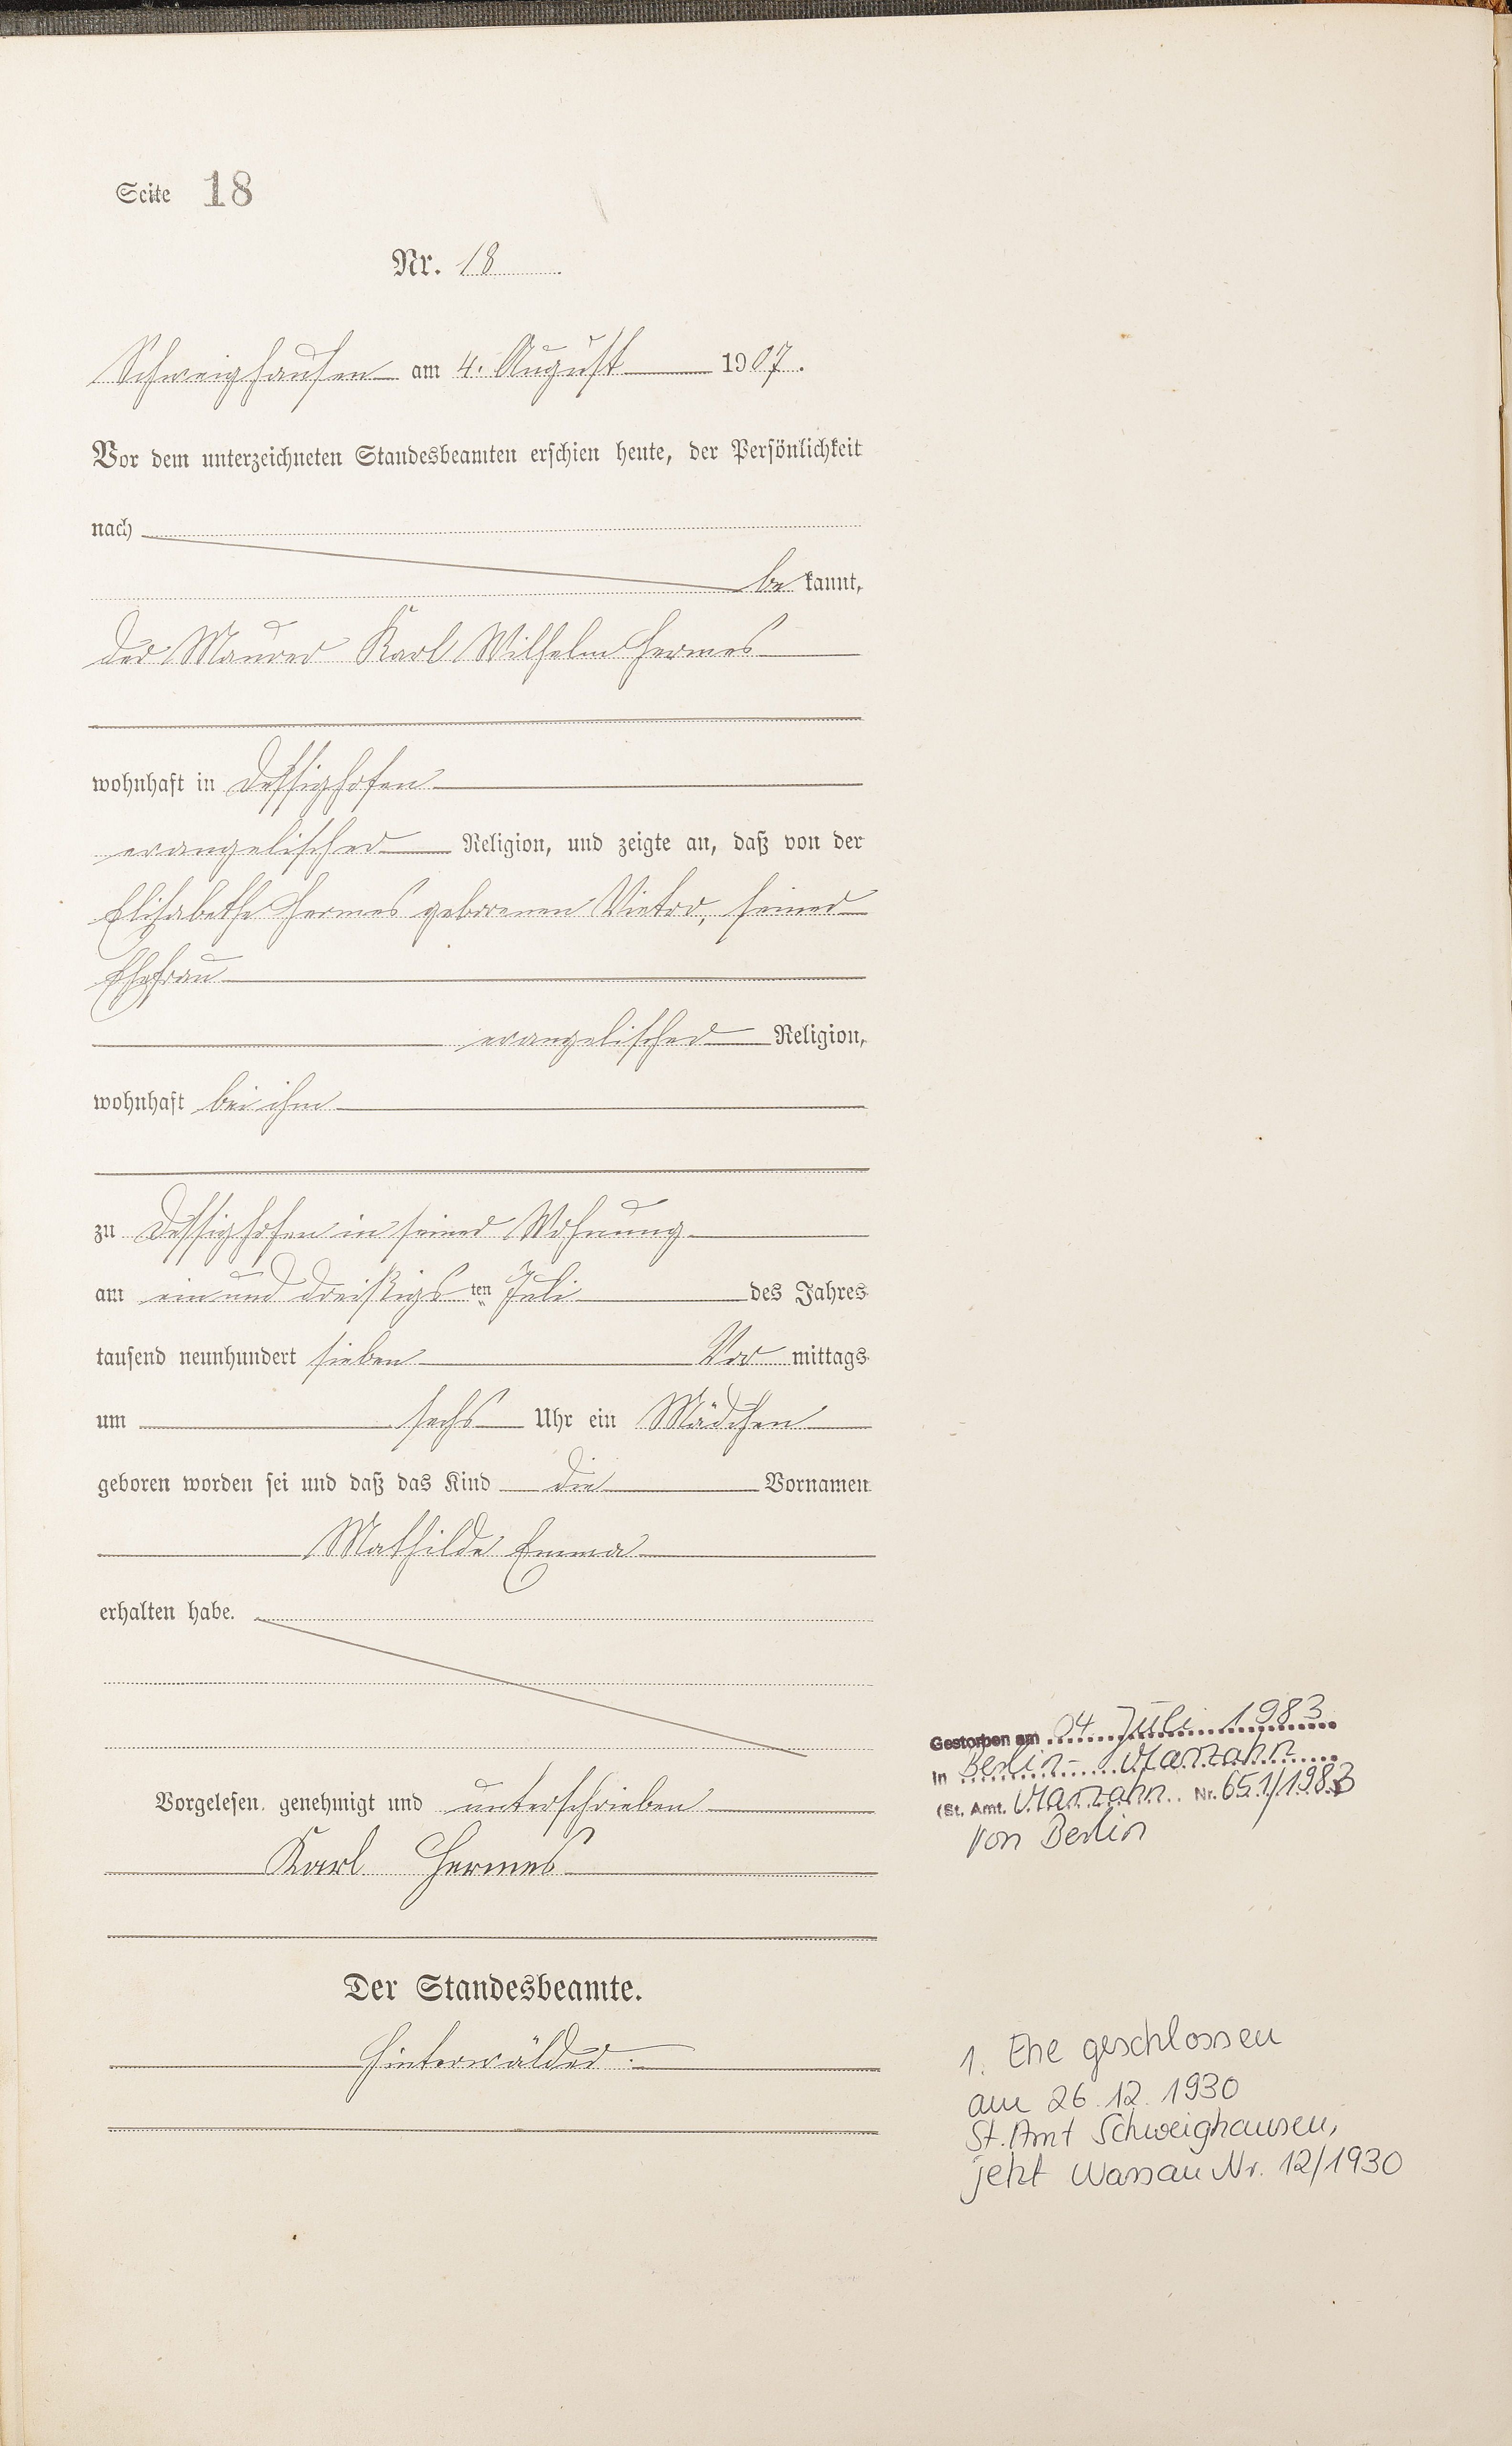 Seite 18
Nr. 18
Schweighausen am 4. August 1907.
Vor dem unterzeichneten Standesbeamten erschien heute, der Persönlichkeit
nach
be kannt,
der Maurer Karl Wilhelm Hermes
wohnhaft in Dessighofen
evangelischer Religion, und zeigte an, daß von der
Elisabethe Hermes geborenen Vietor, seiner
Ehefrau
evangelischer Religion,
wohnhaft bei ihm
zu Dessighofen in seiner Wohnung
am ein und dreißigsten Juli des Jahres
tausend neunhundert sieben Vor mittags
um sechs Uhr ein Mädchen
geboren worden sei und daß das Kind die Vornamen
Mathilde Emma
erhalten habe.
Vorgelesen, genehmigt und unterschrieben
Karl Hermes
Der Standesbeamte.
Hinterwälder.
Gestorben am 04. Juli 1983
in Berlin-Marzahn
(St. Amt. Marzahn Nr. 651/1983
von Berlin
1. Ehe geschlossen
am 26.12.1930
St. Amt Schweighausen,
jetzt Nassau Nr. 12/1930